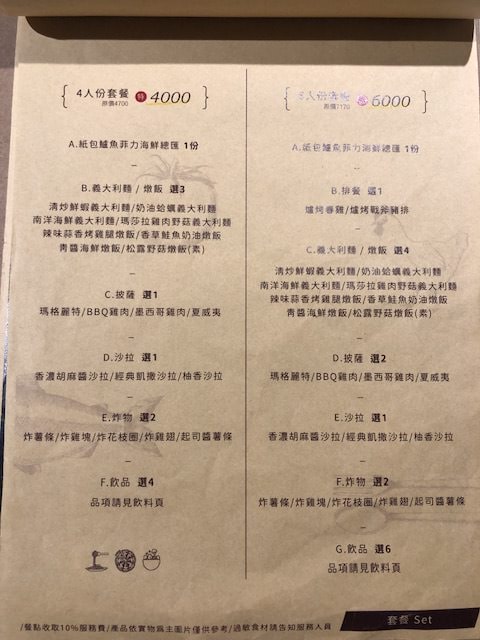 4人份套餐 特 4000
原價4700
A.紙包鱸魚菲力海鮮總匯 1份
–
B.義大利麵 / 燉飯 選3
清炒鮮蝦義大利麵/奶油蛤蠣義大利麵
南洋海鮮義大利麵/瑪莎拉雞肉野菇義大利麵
辣味蒜香烤雞腿燉飯/香草鮭魚奶油燉飯
青醬海鮮燉飯/松露野菇燉飯(素)
–
C.披薩 選1
瑪格麗特/BBQ雞肉/墨西哥雞肉/夏威夷
–
D.沙拉 選1
香濃胡麻醬沙拉/經典凱撒沙拉/柚香沙拉
–
E.炸物 選2
炸薯條/炸雞塊/炸花枝圈/炸雞翅/起司醬薯條
–
F.飲品 選4
品項請見飲料頁
人份套餐 特 6000
原價7170
A.紙包鱸魚菲力海鮮總匯 1份
–
B.排餐 選1
爐烤春雞/爐烤戰斧豬排
–
C.義大利麵 / 燉飯 選4
清炒鮮蝦義大利麵/奶油蛤蠣義大利麵
南洋海鮮義大利麵/瑪莎拉雞肉野菇義大利麵
辣味蒜香烤雞腿燉飯/香草鮭魚奶油燉飯
青醬海鮮燉飯/松露野菇燉飯(素)
–
D.披薩 選2
瑪格麗特/BBQ雞肉/墨西哥雞肉/夏威夷
–
E.沙拉 選1
香濃胡麻醬沙拉/經典凱撒沙拉/柚香沙拉
–
F.炸物 選2
炸薯條/炸雞塊/炸花枝圈/炸雞翅/起司醬薯條
–
G.飲品 選6
品項請見飲料頁
/餐點收取10%服務費/產品依實物為主圖片僅供參考/過敏食材請告知服務人員
套餐 Set